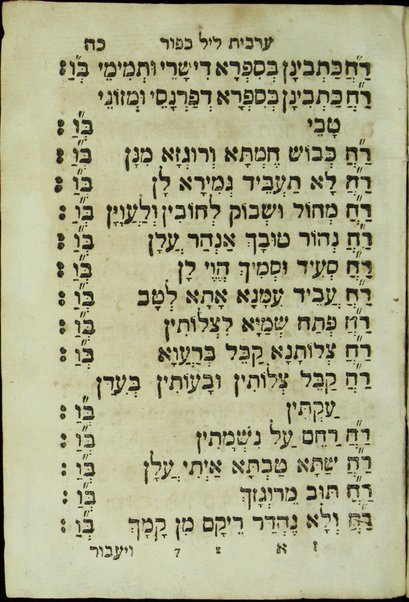 ערבית ליל כפור כה
רַחֲ כַּתְבִינָן בְּסִפְרָא דִישָרֵי וּתְמִימֵי בְּוַ :
רַחֲ כַּתְבִינָן בְּסִפְרָא דְפַרְנָסֵי וּמְזוֹנֵי
טָבֵי בְּוַ :
רַחֲ כְּבוֹשׁ חֶמְתָּא וְרוּגְזָא מִנָּן בְּוַ :
רַחֲ לָא תַעֲבֵיד גְּמִירָא לָן בְּוַ :
רַחֲ מְחוֹל וּשְׁבוֹק לְחוֹבִין וְלַעֲוָיָן בְּוַ :
רַחֲ נְהוֹר טוּבָךְ אַנְהַר עֲלָן בְּוַ :
רַחֲ סְעֵיד וּסְמִיךְ הֱוֵי לָן בְּוַ :
רַחֲ עֲבֵיד עִמָּנָא אָתָא לְטָב בְּוַ :
רַחֲ פְּתַח שְׁמַיָּא לִצְלוֹתִין בְּוַ :
רַחֲ צְלוֹתָנָא קַבֵּל בְּרַעֲוָא בְּוַ :
רַחֲ קַבֵּל צְלוֹתִין וּבָעוֹתִין בְּעִדָּן
עָקְתִין בְּוַ :
רַחֲ רַחֵם עַל נִשְׁמָתִין בְּוַ :
רַחֲ שַׁתָּא טַבְתָּא אַיְתִי עֲלָן בְּוַ :
רַחֲ תּוּב מֵרוּגְזָךְ בְּוַ :
רַחֲ וְלָא נֶהְדַר רֵיקָם מִן קָמָךְ בְּוַ :
ז א ז 7 ויעבור